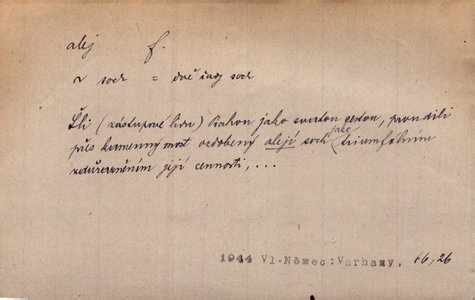 alej f.
~ soch = dvě řady soch
Šli (zástupové lidu) Prahou jako svatou cestou, proudili
přes kamenný most ozdobený alejí soch jako triumfálním
zdůrazněním její cennosti, ...
1944 Vl.Němec:Varhany, 66,26